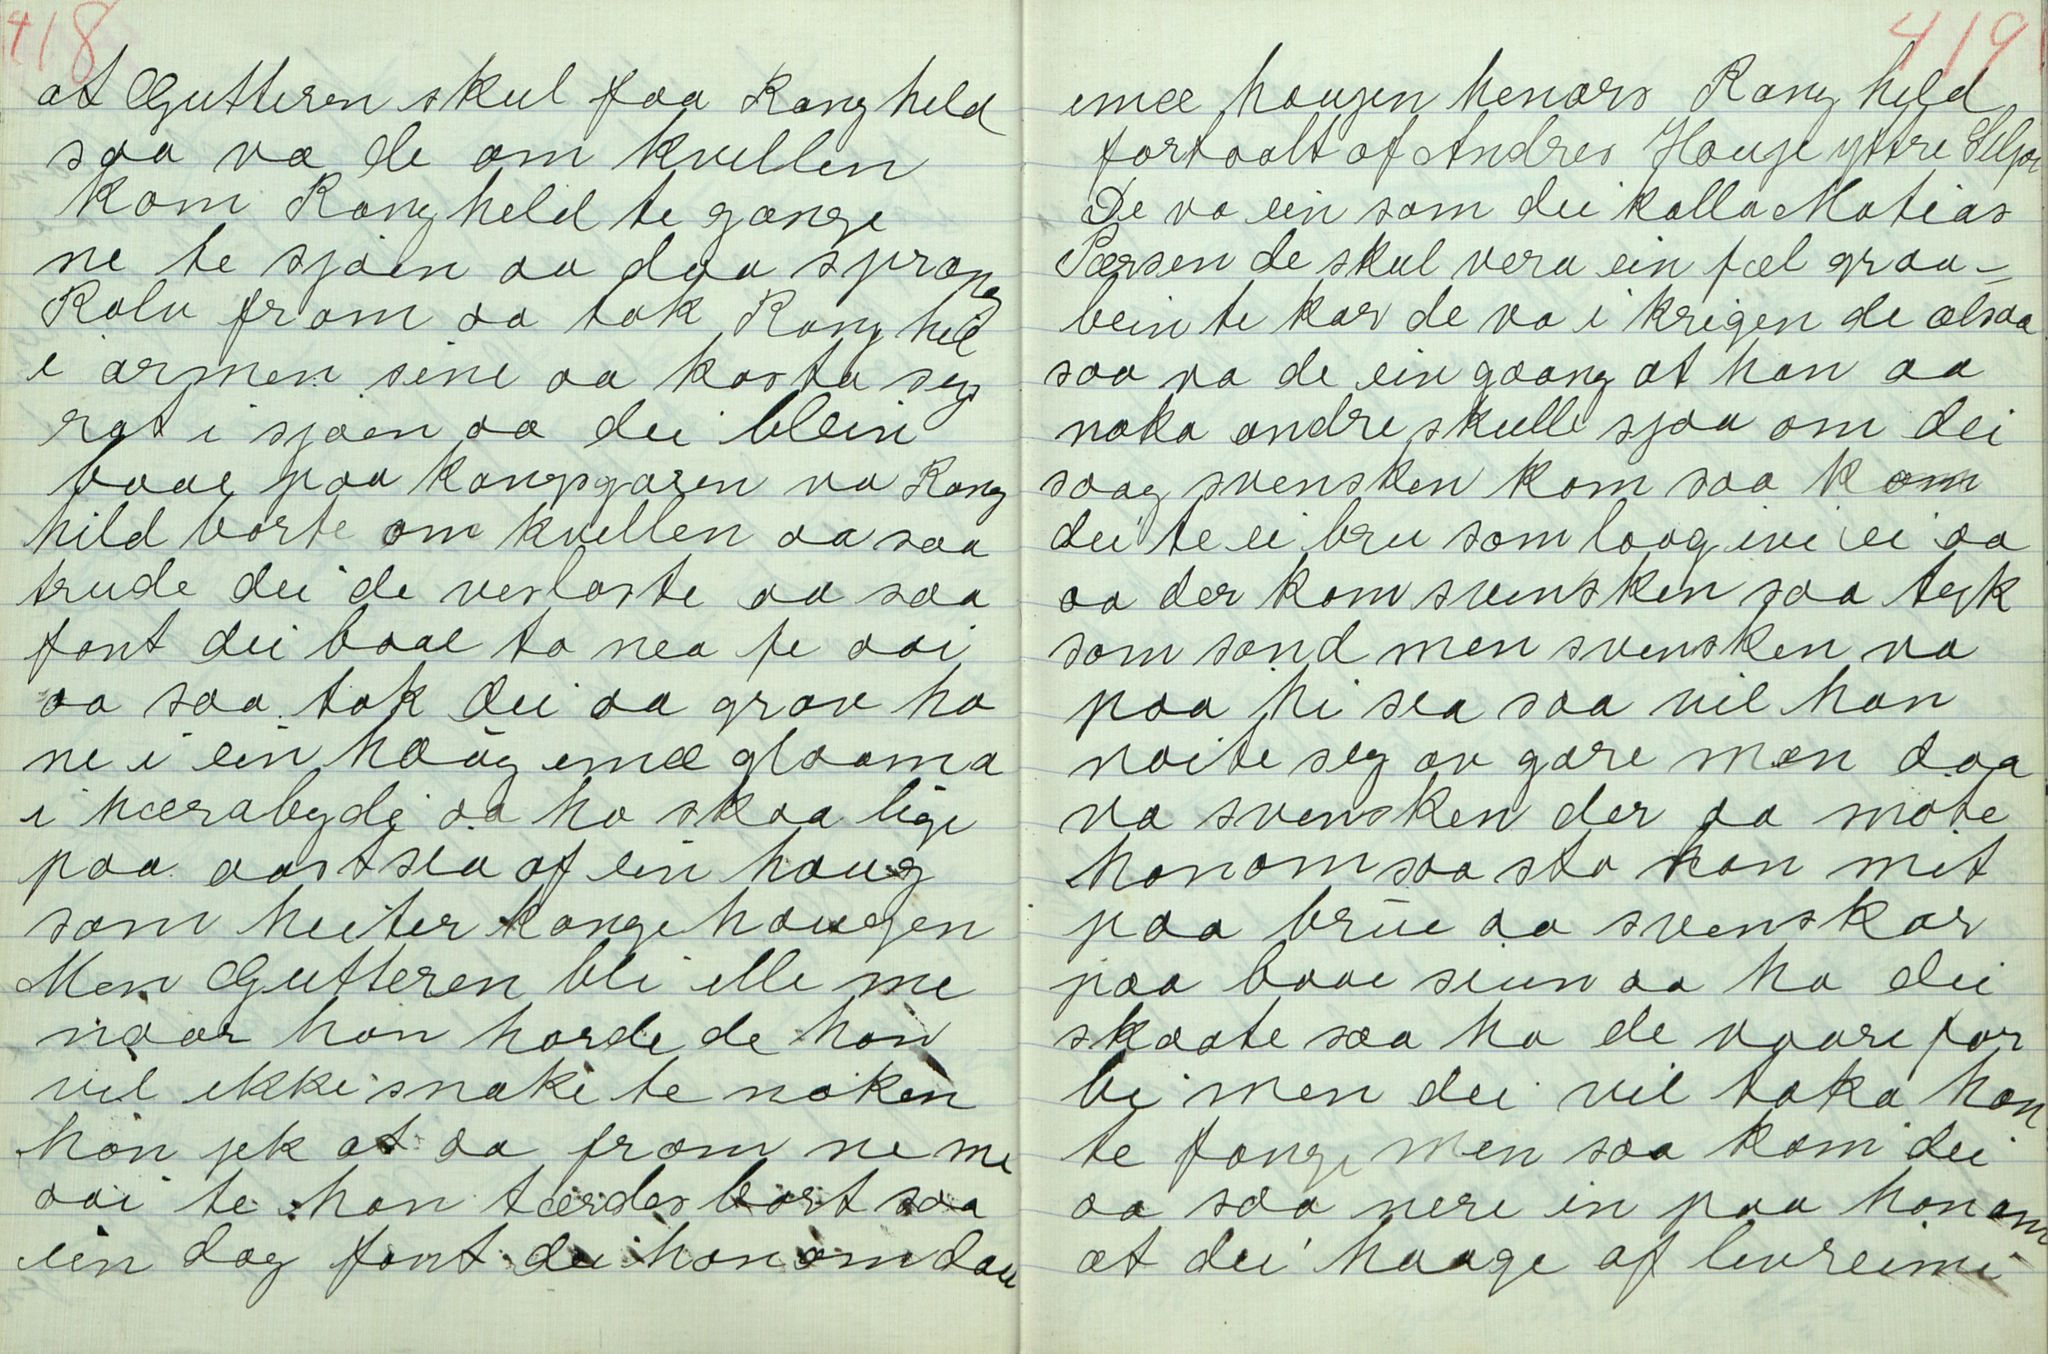 418
at Gutteren skul faa Rangheld
saa va de om kvellen
kom Rangheld te gange
ne te sjøen aa daa sprang
Rolv fram aa tok Ranghil
i armen sine aa kasta seg
rat i sjøen aa dei blein
baae paa kongsgaren va Rang
hild borte om kvellen aa saa
trude dei de veslaste aa saa
fant dei baae to nea fe aai
aa saa tok dei aa grov ho
ne i ein haug imæ glaama
i hærabyde aa ho skaa lige
paa aastsia af ein haug
som heiter kongehaugen
Men Gutteren bli ille me
naar han horde de han
vil ikke snake te noken
han jek at aa fram ne me
aai te han tærdes bort saa
ein dag fant dei honom dau
419
imæ haugen henars Rangheld
fortaalt af Andres Hauge yttre
De va ein som dei kalla Matias
Pærsen de skul vera ein fæl graa-
bein te kar de va i krigen de alsaa
saa va de ein gaang at han aa
noka andre skulle sjaa om dei
saag svensken kom saa kom
dei te ei bru som laag ivi ei aa
aa der kom svensken saa tyk
som sand men svensken va
paa hi sea saa vil han
noite seg av gare men daa
va svensken der aa møte
honom saa sto han mit
paa brue aa svenskar
paa baae sieun aa ha dei
skaate saa ha de vaare for
bi men dei vil taka han
te fange men saa kom dei
aa saa nere in paa honom
at dei haage af livreimi